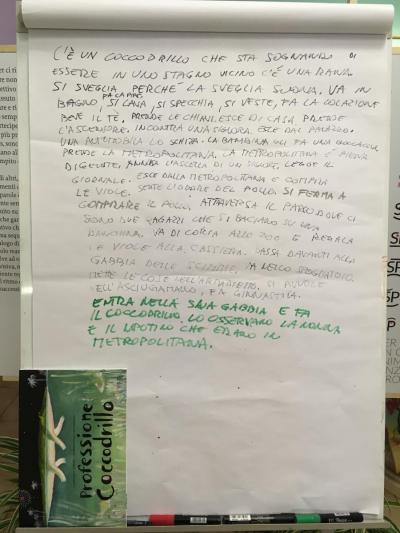 C'È UN COCCODRILLO CHE STA SOGNANDO DI
ESSERE IN UNO STAGNO VICINO C'È UNA RANA.
SI SVEGLIA, PERCHÈ LA SVEGLIA SUONA. VA IN
BAGNO, FA LA PIPÌ, SI LAVA, SI SPECCHIA, SI VESTE, FA LA COLAZIONE
BEVE IL TÈ, PRENDE LE CHIAVI. ESCE DI CASA PRENDE
L'ASCENSORE. INCONTRA UNA SIGNORA. ESCE DAL PALAZZO.
UNA AUTOMOBILA LO SCHIZZA. LA BAMBINA GLI FA UNA BOCCACCIA
PRENDE LA METROPOLITANA. LA METROPOLITANA È PIENA
DI GENTE, L'ASCELLA DI UN SIGNORE. LEGGE IL
GIORNALE. ESCE DALLA METROPOLITANA E COMPRA
LE VIOLE. SENTE L'ODORE DEL POLLO. SI FERMA A
COMPRARE IL POLLO. ATTRAVERSA IL PARCO DOVE CI
SONO DUE RAGAZZI CHE SI BACIANO SU UNA
PANCHINA. VA DI CORSA ALLO ZOO E REGALA
LE VIOLE ALLA CASSIERA. PASSA DAVANTI ALLA
GABBIA DELLE SCIMMIE, VA NELLO SPOGLIATOIO.
METE LE COSE NELL'ARMADIETTO. SI AVVOLE
NELL'ASCIUGAMANO, FA GINNASTICA.
ENTRA NELLA SUA GABBIA E FA
IL COCCODRILLO. LO OSSERVANO LA NONNA
E IL NIPOTINO CHE ERANO IN
METROPOLITANA.
Professione
Coccodrillo